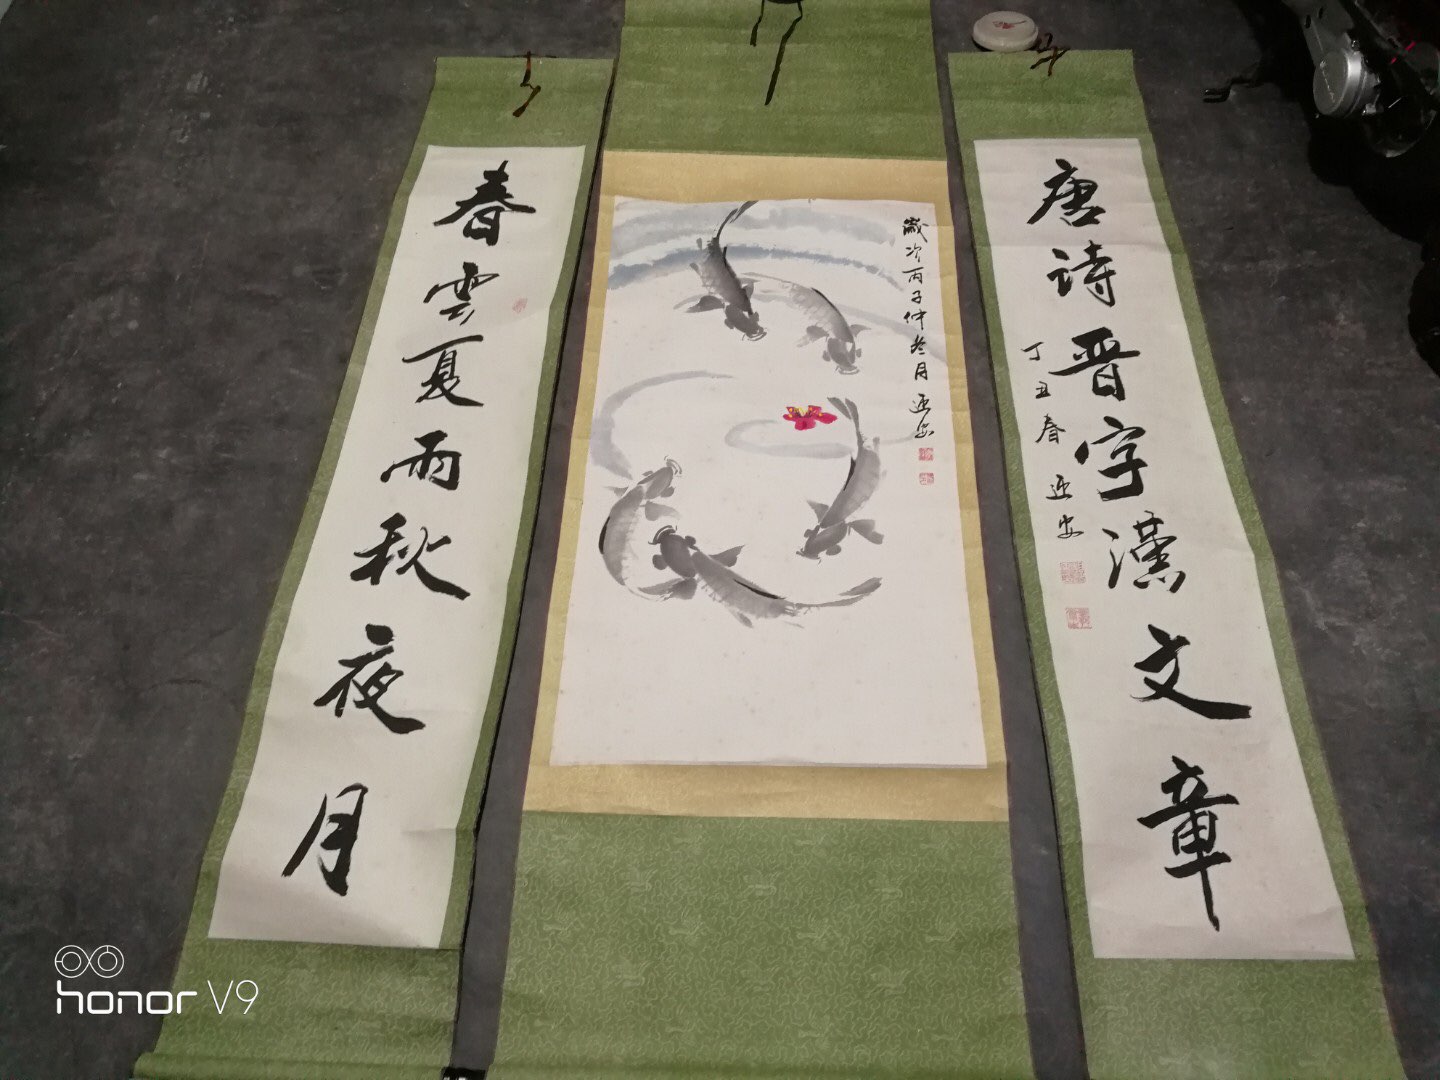 唐诗晋字漢文章
丁丑春
安
歲次丙子仲冬月
安
春雲夏雨秋夜月
honor V9